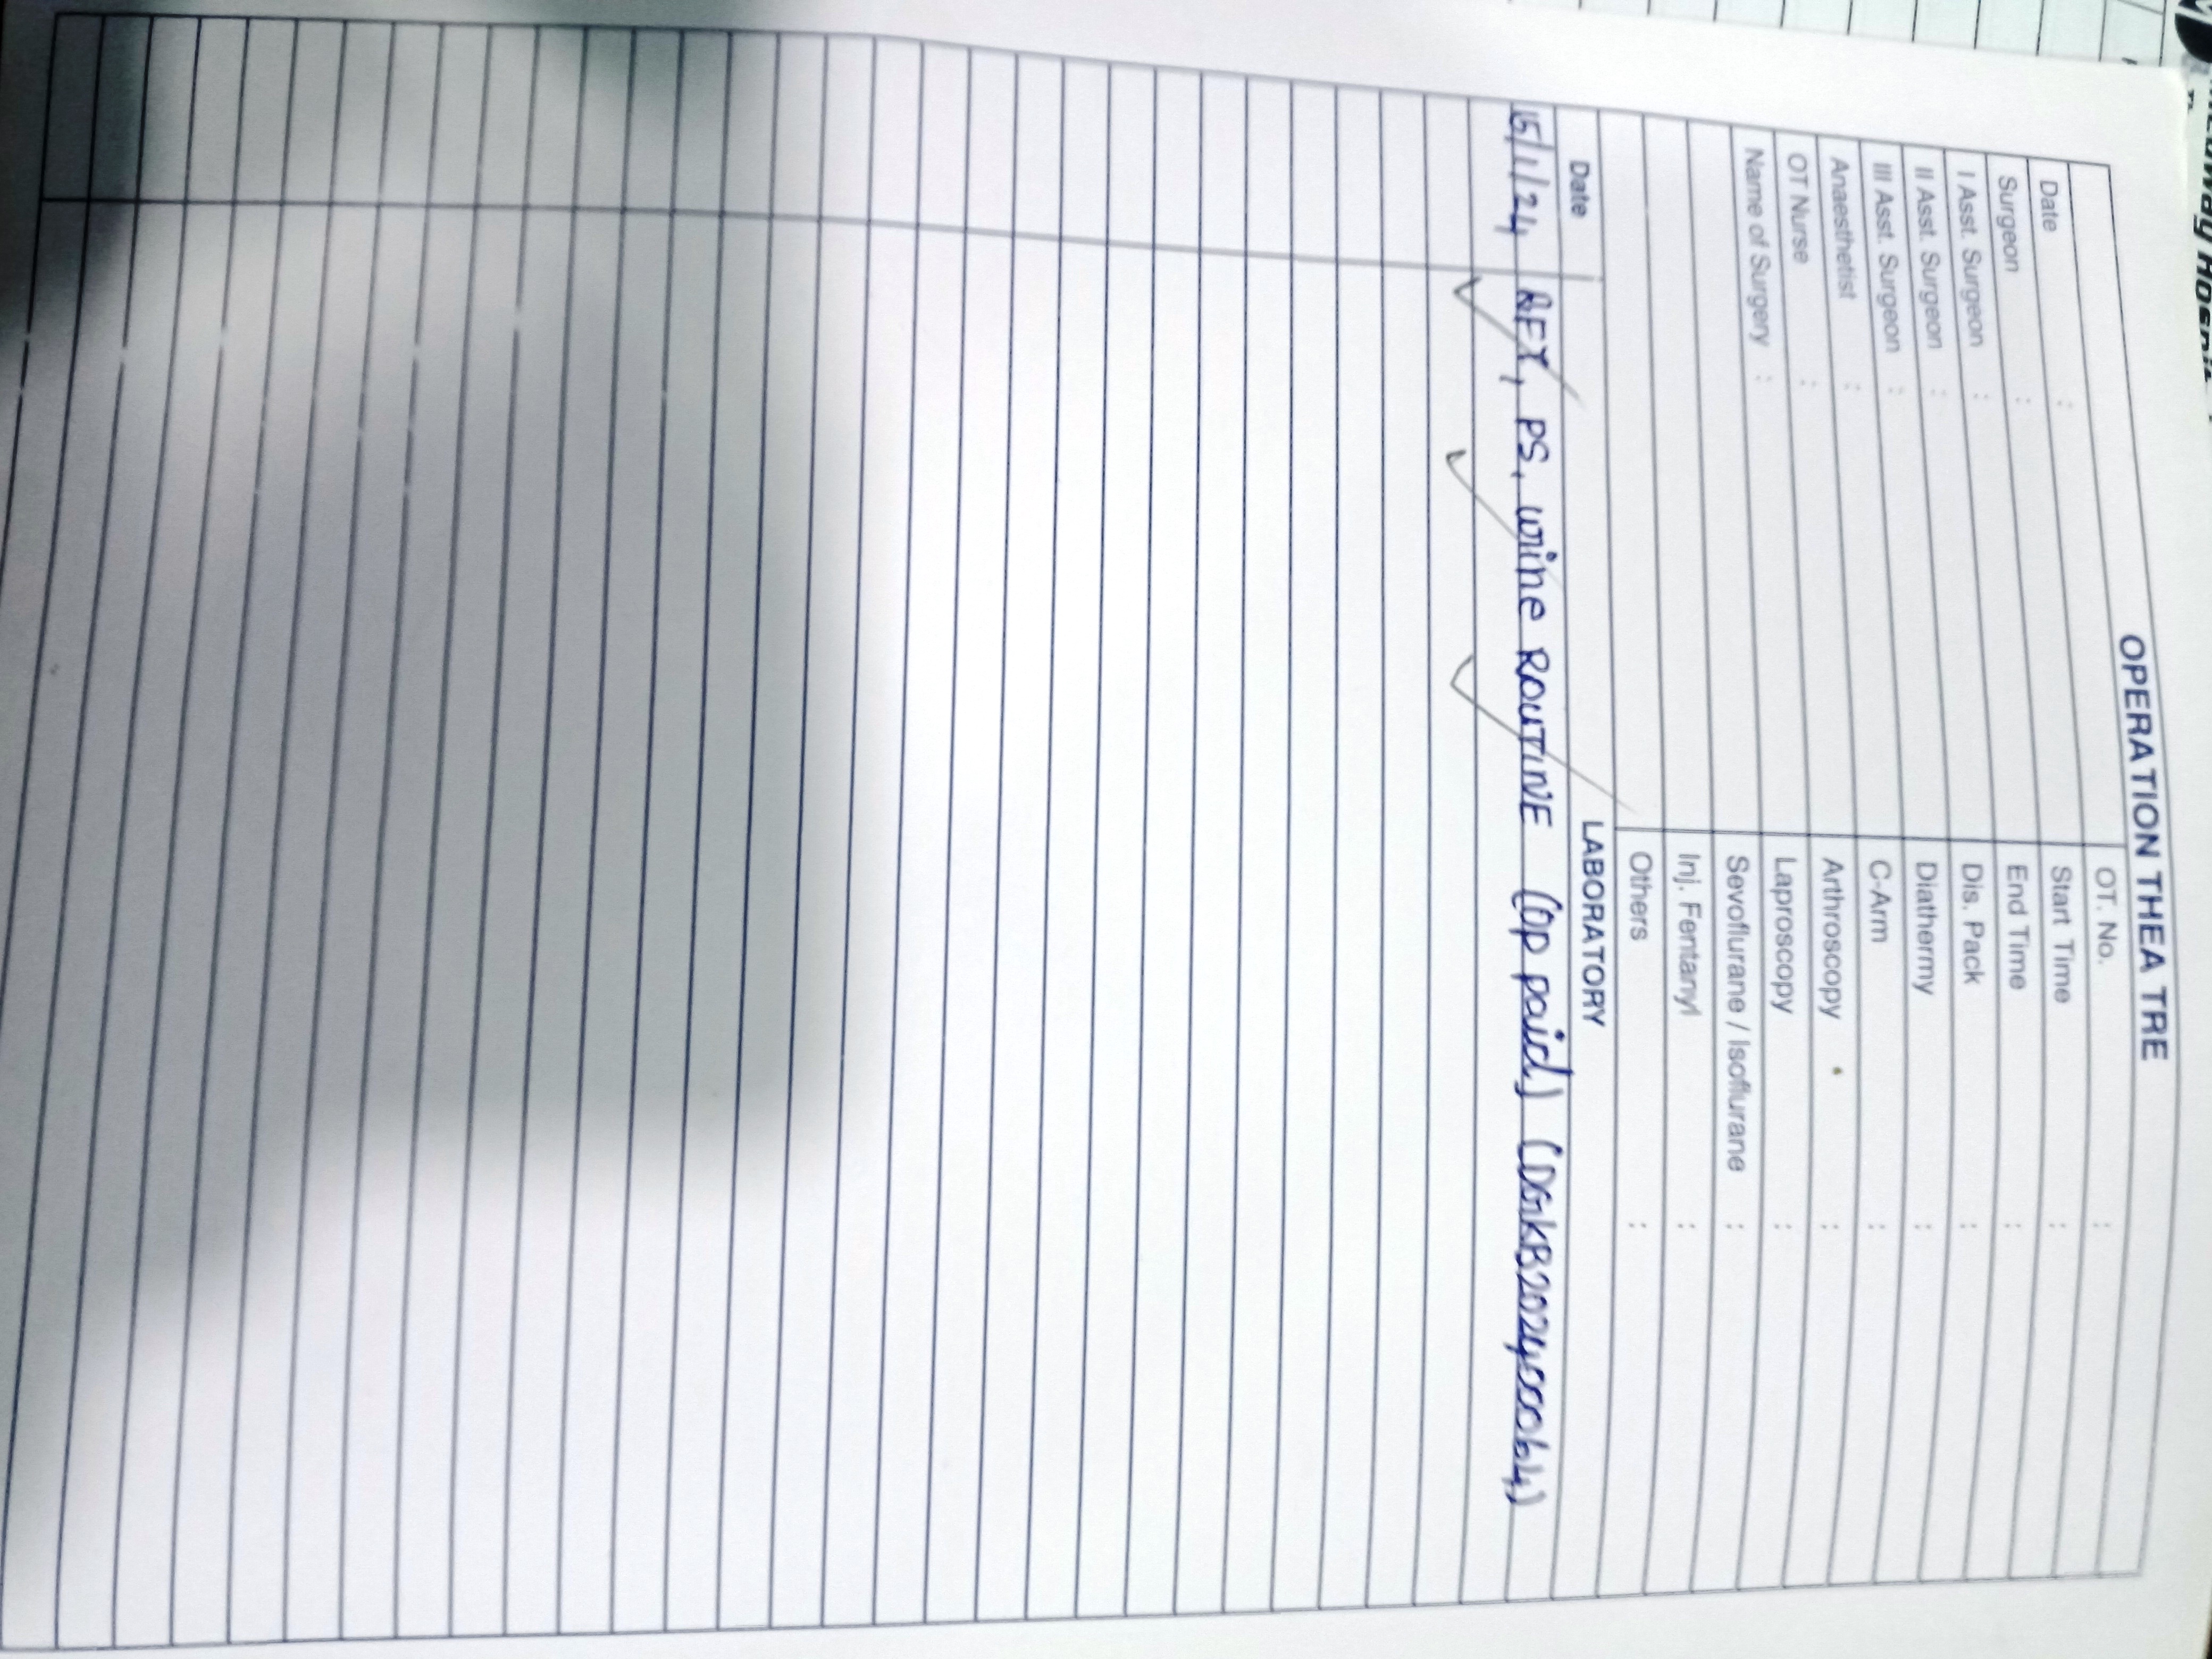 OPERATION THEA TRE
OT. No. :
Date : Start Time :
Surgeon : End Time :
I Asst. Surgeon : Dis. Pack :
II Asst. Surgeon : Diathermy :
III Asst. Surgeon : C-Arm :
Anaesthetist : Arthroscopy :
OT Nurse : Laproscopy :
Name of Surgery : Sevoflurane / Isoflurane :
Inj. Fentanyl :
Others :
LABORATORY
Date
15/1/24 PS, urine ROUTINE (OP paid)